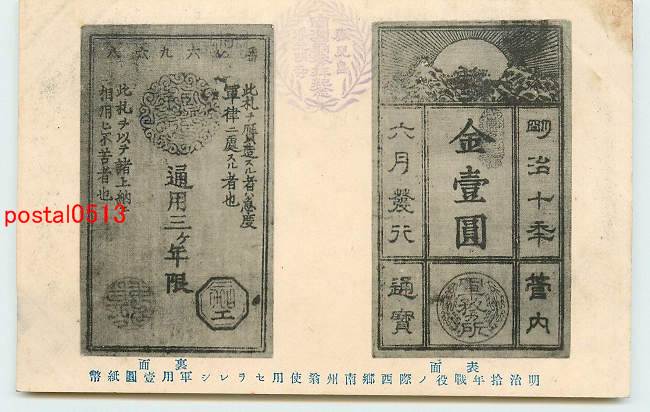 明治十年
金壹圓
六月發行
管内
通寳
軍務所
表面
通用三ヶ年限
此札ヲ贋造スル者ハ急度
軍律ニ處スル者也
此札ヲ以テ諸上納ニ
相用ヒ不苦者也
裏面
明治拾年戰役ノ際西郷南州翁使用セラレシ軍用壹圓紙幣
postal0513